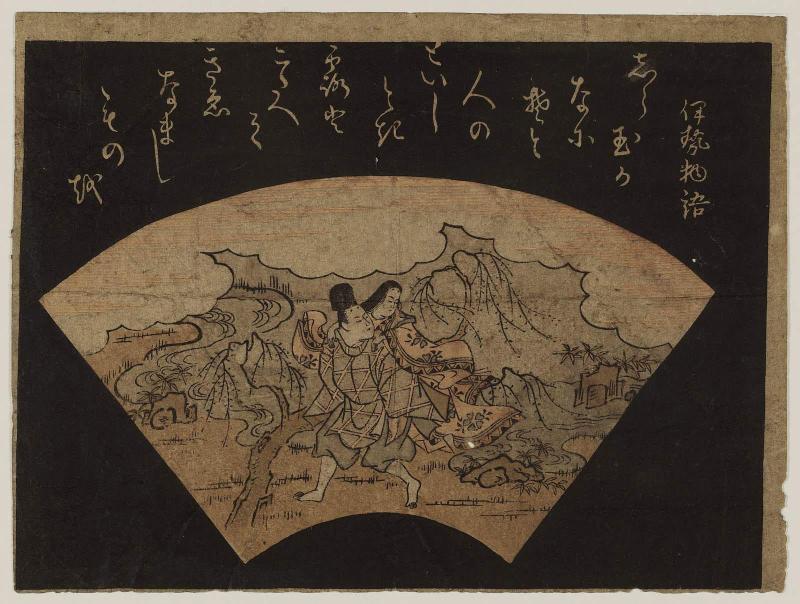 伊勢物語
しら
玉か
なに
そと
人の
といし
とき
露と
こたへ
て
きえ
なまし
ものを